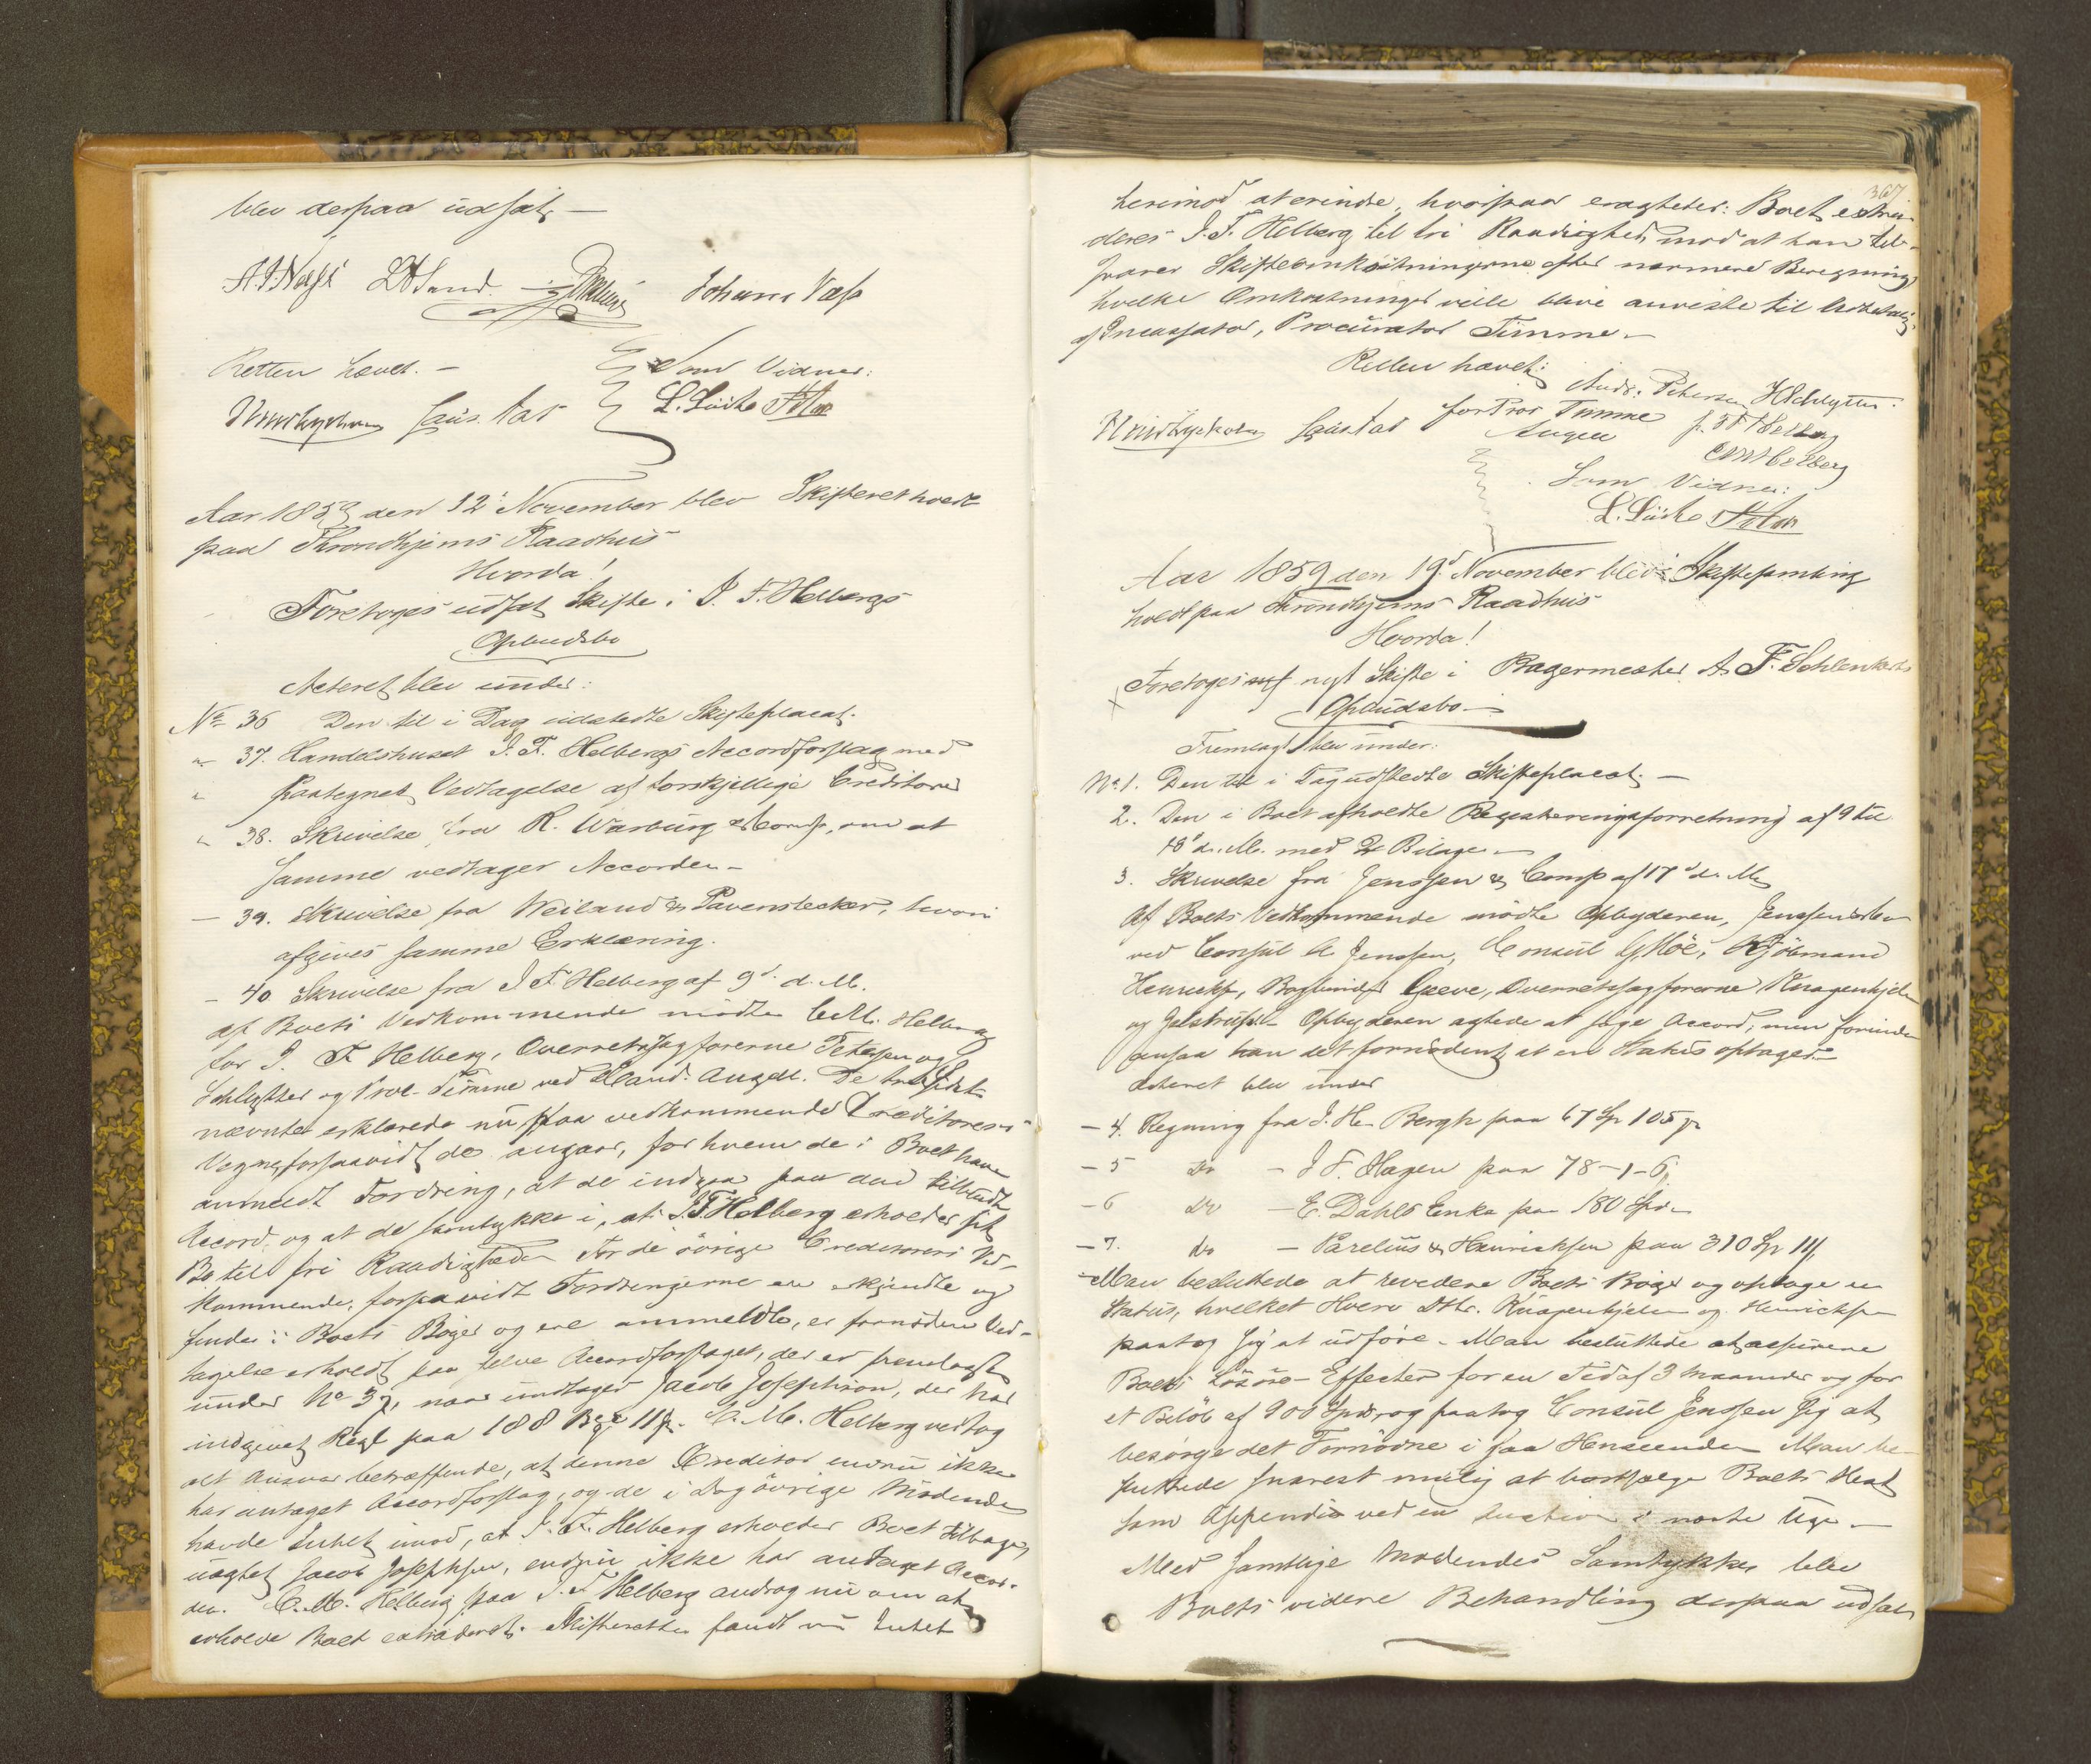 blev derpaa udsat, —
A. I. Næss L. H. Lund. Johann Væs
Retten hævet. — Som Vidner:
const. L. Lücke
Aar 1859 den 12' November blev Skifteret holdt
paa Throndhjems Raadhus
Hvorda!
Foretoges udsat Skifte i J. F. Helbergs
Opbudsbo
Acteret blev under:
No 36 Den til i Dag udstedte Skifteplacat.
" 37. Handelshuset J. F. Helbergs Accordforslag med
" Paategnet Vedtagelse af forskjellige Creditorer
" 38. Skrivelse fra R. Warburg & Comp, om at
samme vedtager Accorden —
— 39. Skrivelse fra Weiland & Pavenstecker, hvori
afgives samme Erklæring.
— 40 Skrivelse fra J. F. Helberg af 9d. d. M.
af Boets Vedkommende mødte C. M. Helberg
for J. F. Helberg, Overretssagførerne Petersen og
Schlytter og Proc. Timme ved Hand. Angell. De tre sidst-
nævnte erklærede nu paa vedkommende Creditorers
Vegne, forsaavidt de angaar, for hvem de i Boet have
anmeldt Fordring, at de indgaa paa den tilbudte
Accord, og at de samtykke i, at J. F. Helberg erholder sit
Bo til fri Raadighed. For de övrige Creditorers Ved-
kommende, forsaavidt Fordringerne ere erkjendte og
findes i Boets Bøger og ere anmeldte, er fornøden Ved-
tagelse erholdt paa selve Accordforslaget, der er fremlagt
under No 37, naar undtages Jacob Josephson, der har
indgivet Regl paa 188 Bco 11 ß. C. M. Helberg vedtog
alt Ansvar betræffende, at denne Creditor endnu ikke
har antaget Accordforslag, og de i Dag övrige Mødende
havde Intet imod, at J. F. Helberg erholder Boet tilbage,
uagtet Jacob Josephson, endnu ikke har antaget Accor-
den. C. M. Helberg paa J. F. Helberg androg nu om at
erholde Boet extraderet. Skifteretten fandt nu Intet
367
herimod at erindre, hvorpaa eragtedes: Boet extra-
deres J. F. Helberg til fri Raadighed, mod at han til-
svarer Skifteomkostningerne efter nærmere Beregning,
hvilke Omkostninger ville blive anviste til Udbetaling
af Incassator, Procurator Timme. —
Retten hævet: Andr. Petersen H Schlytter.
for Proc Timme p. J F Helberg
Angell CM Helberg
Som Vidner:
L. Lücke
Aar 1859 den 19d. November blev Skiftesamling
holdt paa Throndhjems Raadhus
Hvorda!
Foretoges nyt Skifte i Bagermester A. F. Schlenkers
Opbudsbo —
Fremlagt blev under:
No 1. Den til i Dag udstedte Skifteplacat. —
2. Den i Boet afholdte Registreringsforretning af 9 til
18' d. M. med 2 Bilage. —
3. Skrivelse fra Jenssen & Comp af 17d d. M.
Af Boets Vedkommende mødte Opbyderen, Jenssen & Co
ved Consul A Jenssen, Consul G. Moe, Kjöbmand
Henricks, Bogbinder Greve, Overretssagførerne Knagenhjelm
og Gjelstrup. Opbyderen agtede at søge Accord, men forinden
ansaa han det fornødent, at en Status optages. —
Acteret blev under
— 4. Regning fra J. H. Bergh paa 67 Sp 105 ß
— 5 Do — J F. Hagen paa 78 - 1 - 6.
— 6 Do — E. Dahls Enke paa 180 Spd.
— 7. Do — Parelius & Henrichsen paa 310 Sp 11 ß
— Man besluttede at revidere Boets Bøger og optage en
Status, hvilket Hverv DHr. Knagenhjelm og Henrichsen
paatog sig at udføre. Man besluttede at assurere
Boets Løsøre - Effecter for en Tid af 3 Maaneder og for
et Beløb af 900 Spd. og paatog Consul Jenssen sig at
besørge det Fornødne i saa Henseende. Man be-
sluttede snarest mulig at bortsælge Boets Hest
som Appendix ved en Auction i næste Uge. —
Med samtlige Mødendes Samtykke, blev
Boets videre Behandling derpaa udsat,